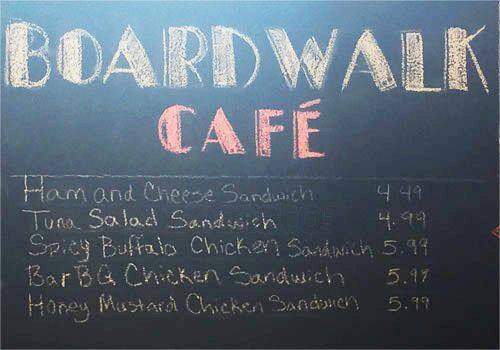 BOARDWALK
CAFÉ
Ham and Cheese Sandwich 4.49
Tuna Salad Sandwich 4.99
Spicy Buffalo Chicken Sandwich 5.99
Bar BQ Chicken Sandwich 5.99
Honey Mustard Chicken Sandwich 5.99